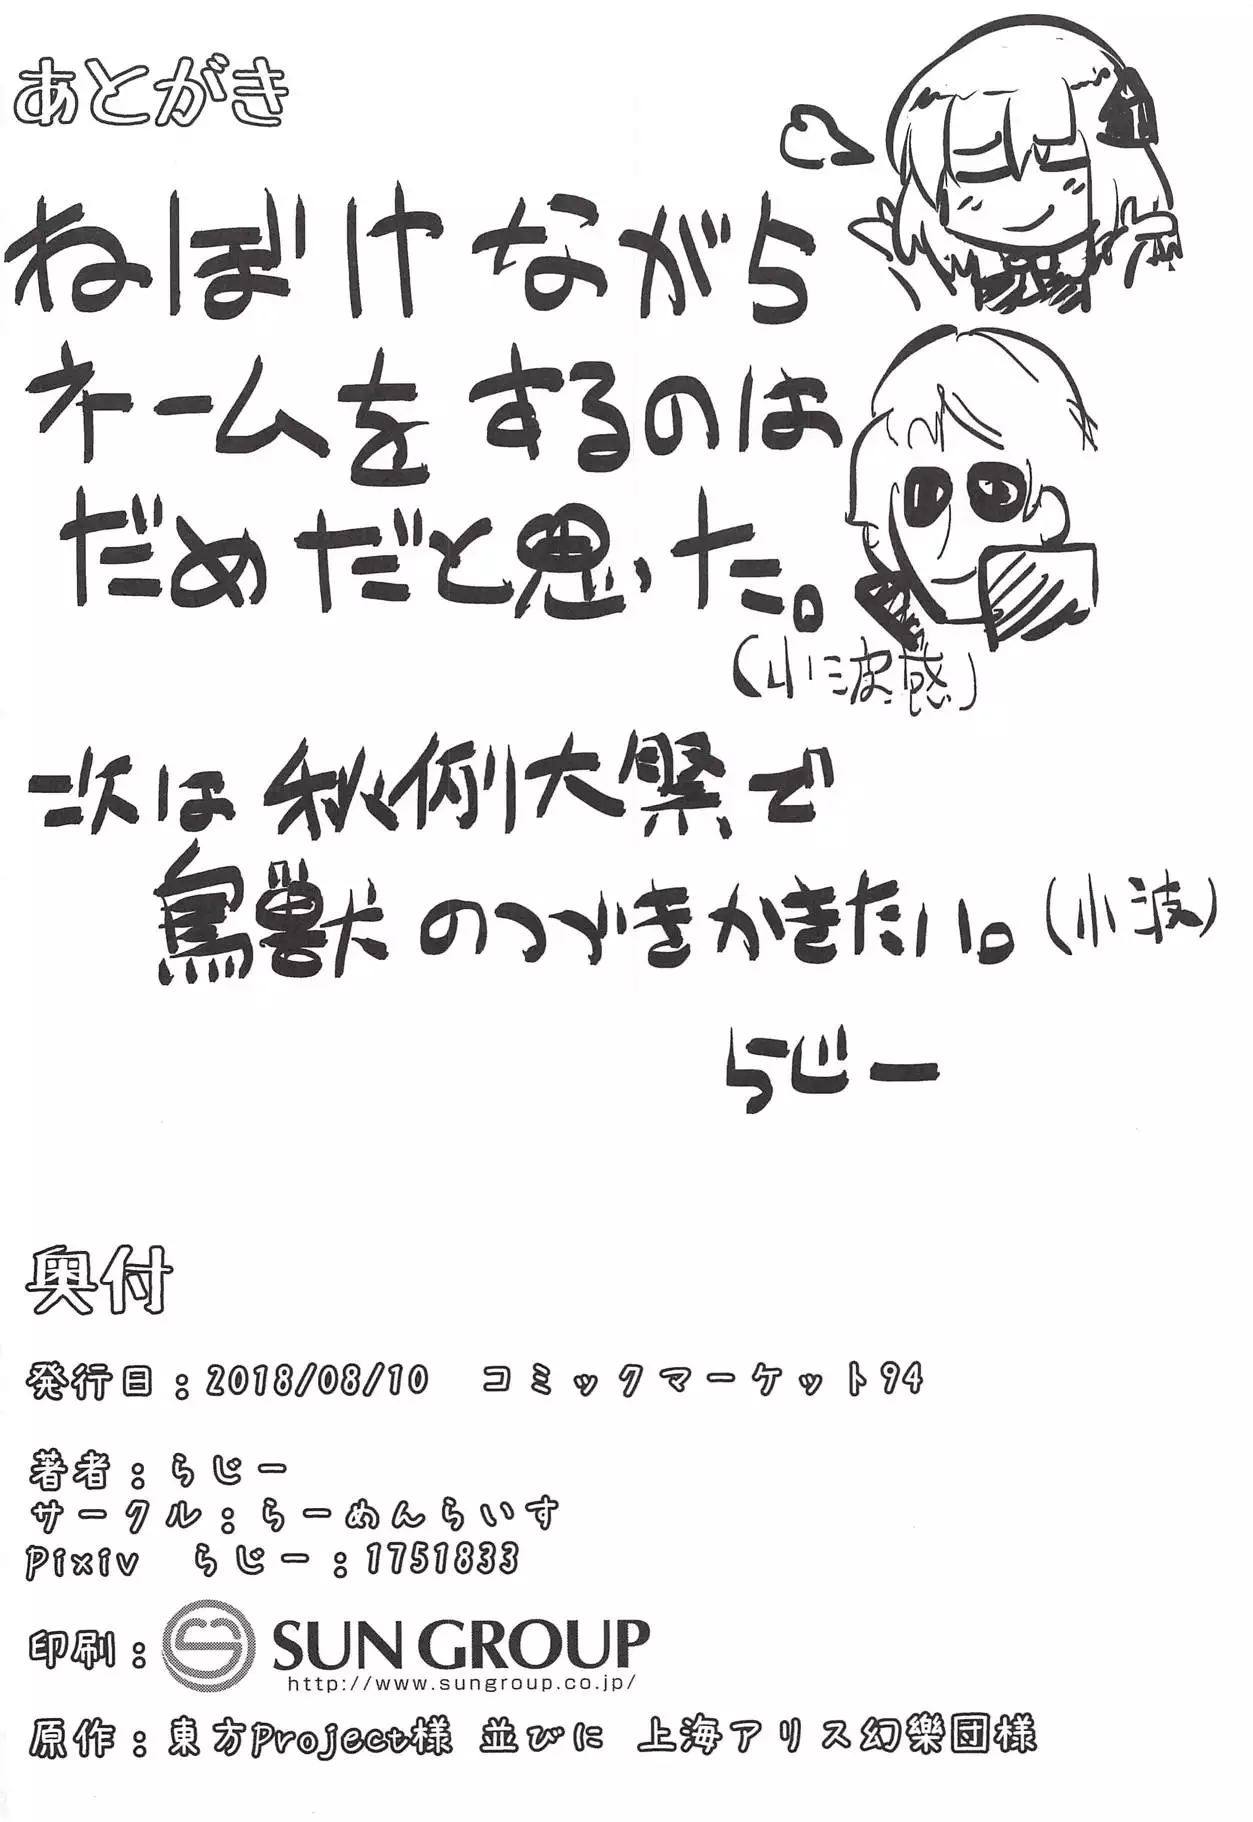 あとがき
ねぼけながら
ネームをするのは
だめだと思いった。
(小波感)
次は秋例大祭で
鳥獣のつづきかきたい。(小波)
らじー
奥付
発行日:2018/08/10　コミックマーケット94
著者:らじー
サークル:らーめんらいす
Pixiv　らじー:1751833
印刷: SUN GROUP
http://www.sungroup.co.jp/
原作:東方Project様 並びに 上海アリス幻樂団様